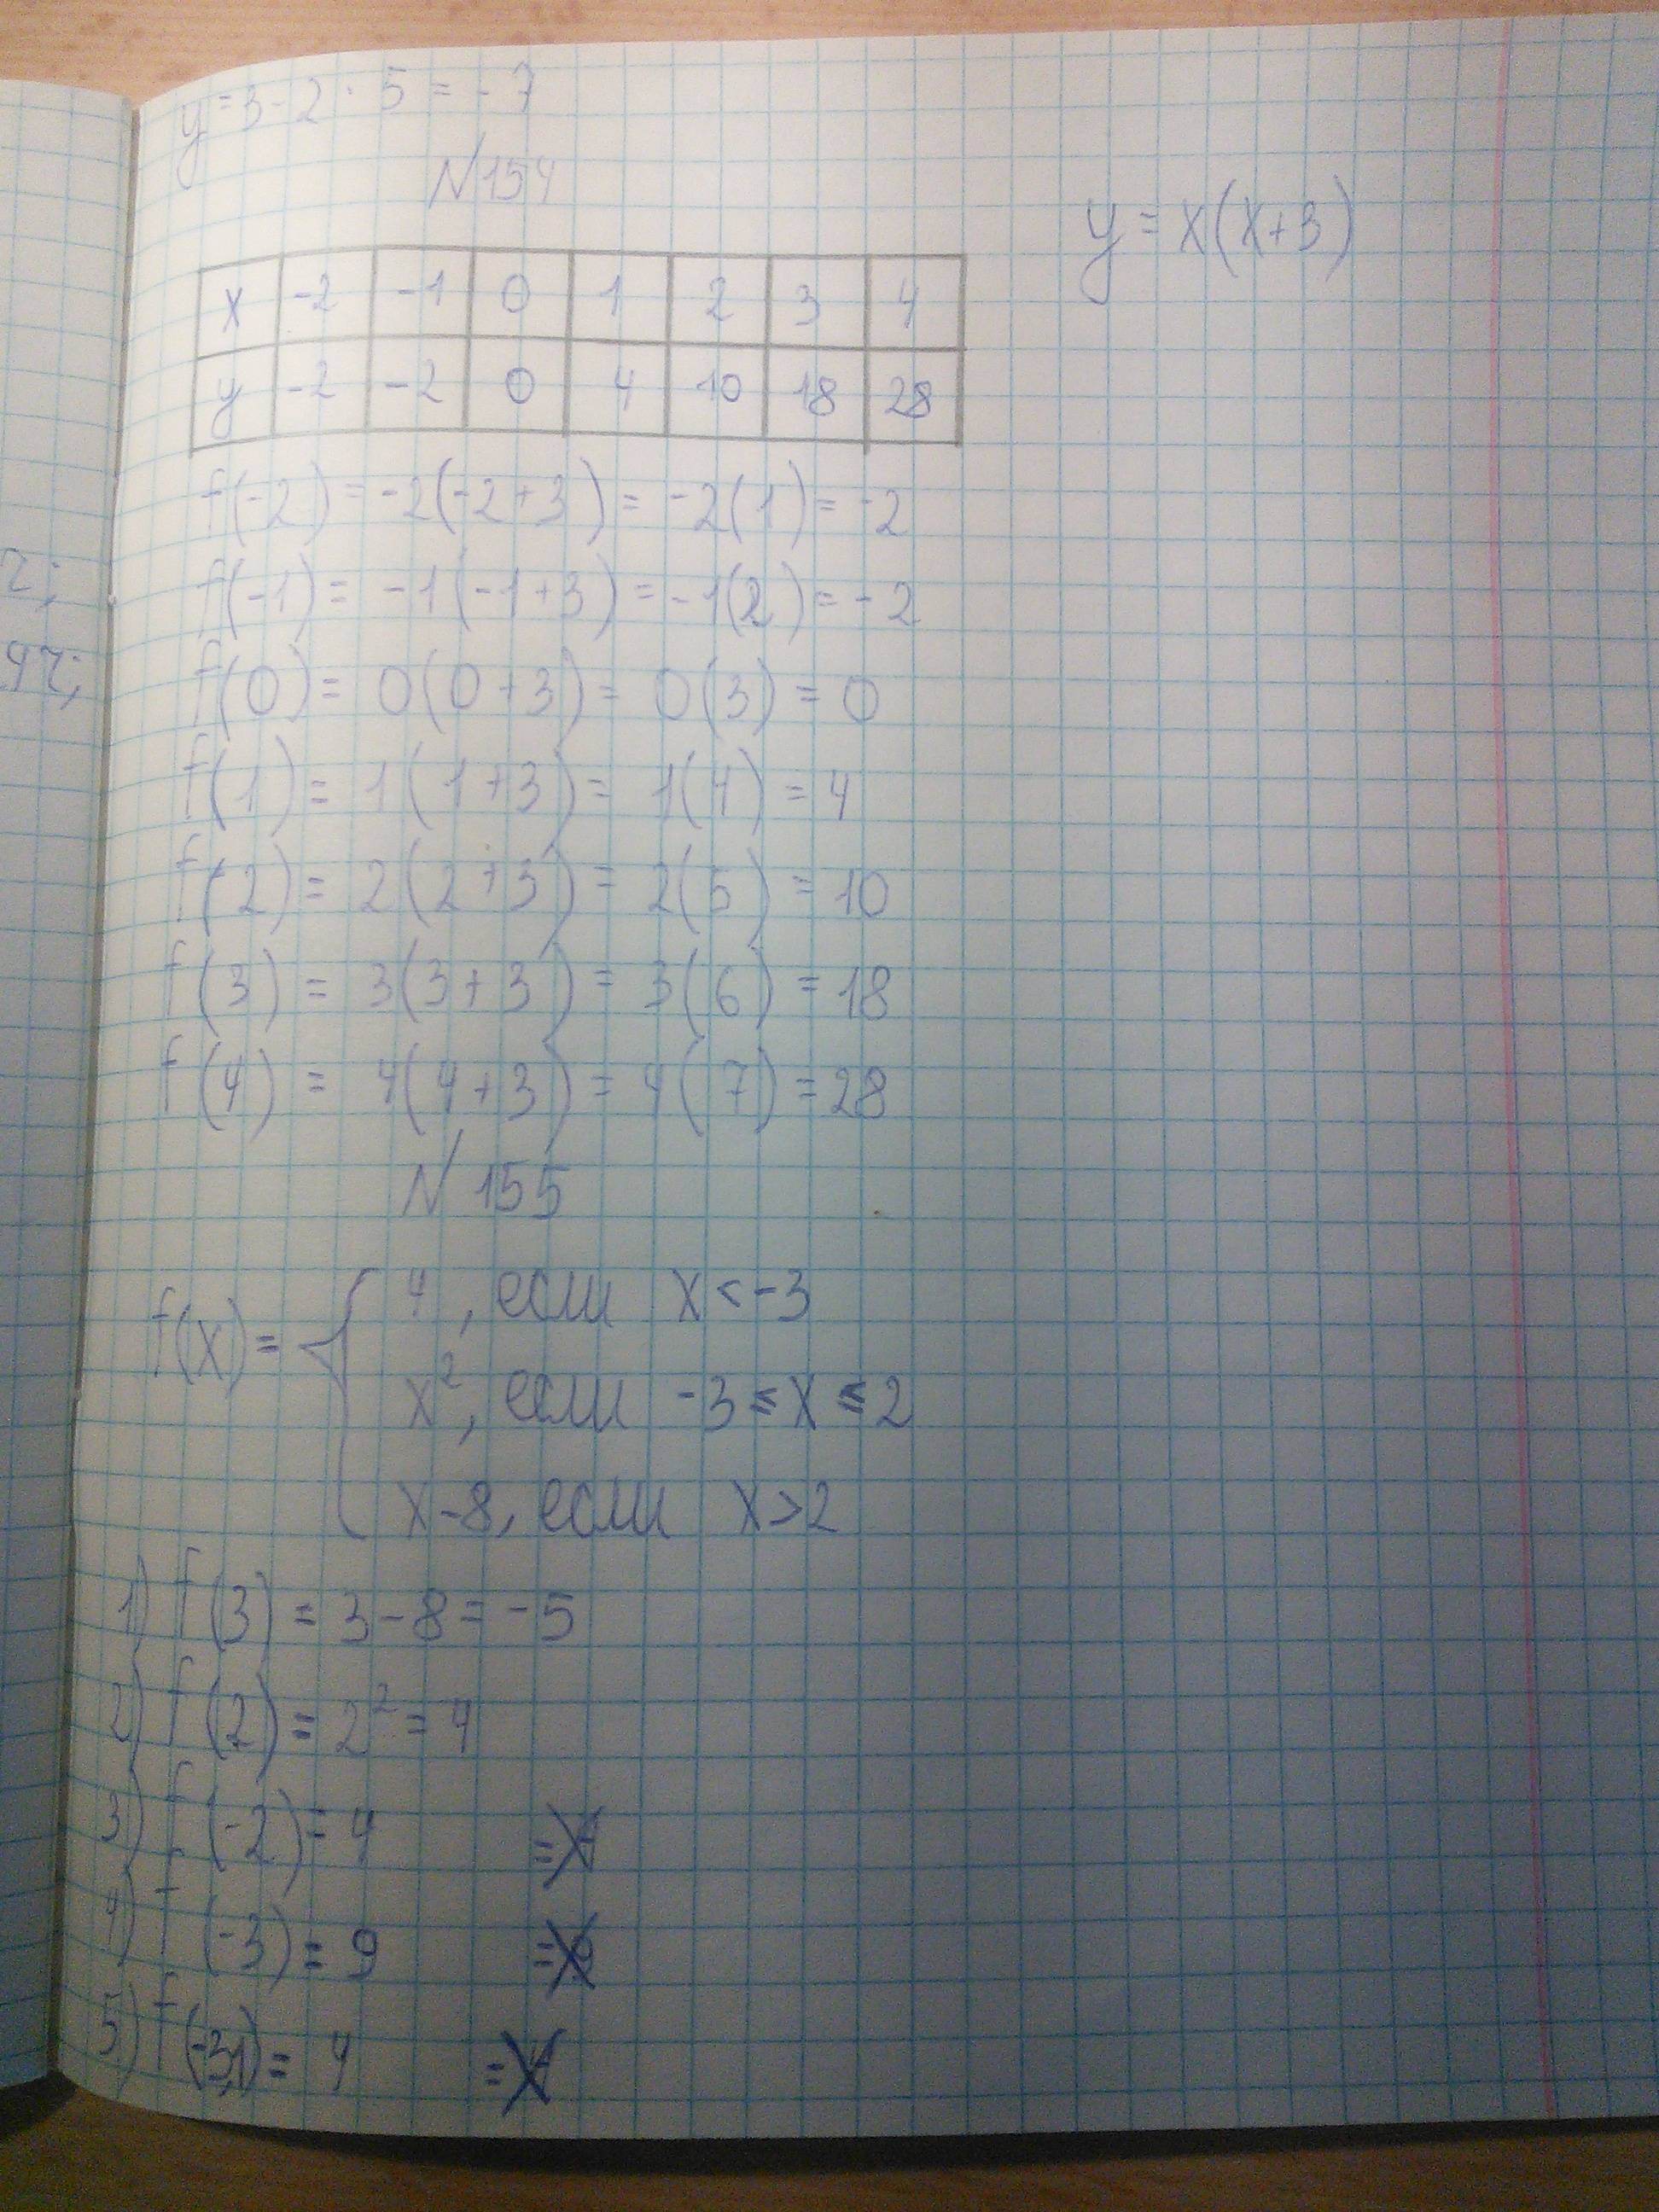 y = 3 - 2 · 5 = - 7
N 154
y = x(x+3)
x -2 -1 0 1 2 3 4
y -2 -2 0 4 10 18 28
f(-2) = -2(-2+3) = -2(1) = -2
f(-1) = -1(-1+3) = -1(2) = -2
f(0) = 0(0+3) = 0(3) = 0
f(1) = 1(1+3) = 1(4) = 4
f(2) = 2(2+3) = 2(5) = 10
f(3) = 3(3+3) = 3(6) = 18
f(4) = 4(4+3) = 4(7) = 28
N 155
4, если x < -3
f(x) = {
x², если -3 ≤ x ≤ 2
x-8, если x > 2
1) f(3) = 3 - 8 = -5
2) f(2) = 2² = 4
3) f(-2) = 4 =
4) f(-3) = 9 =
5) f(-3,1) = 4 =
2;
42;